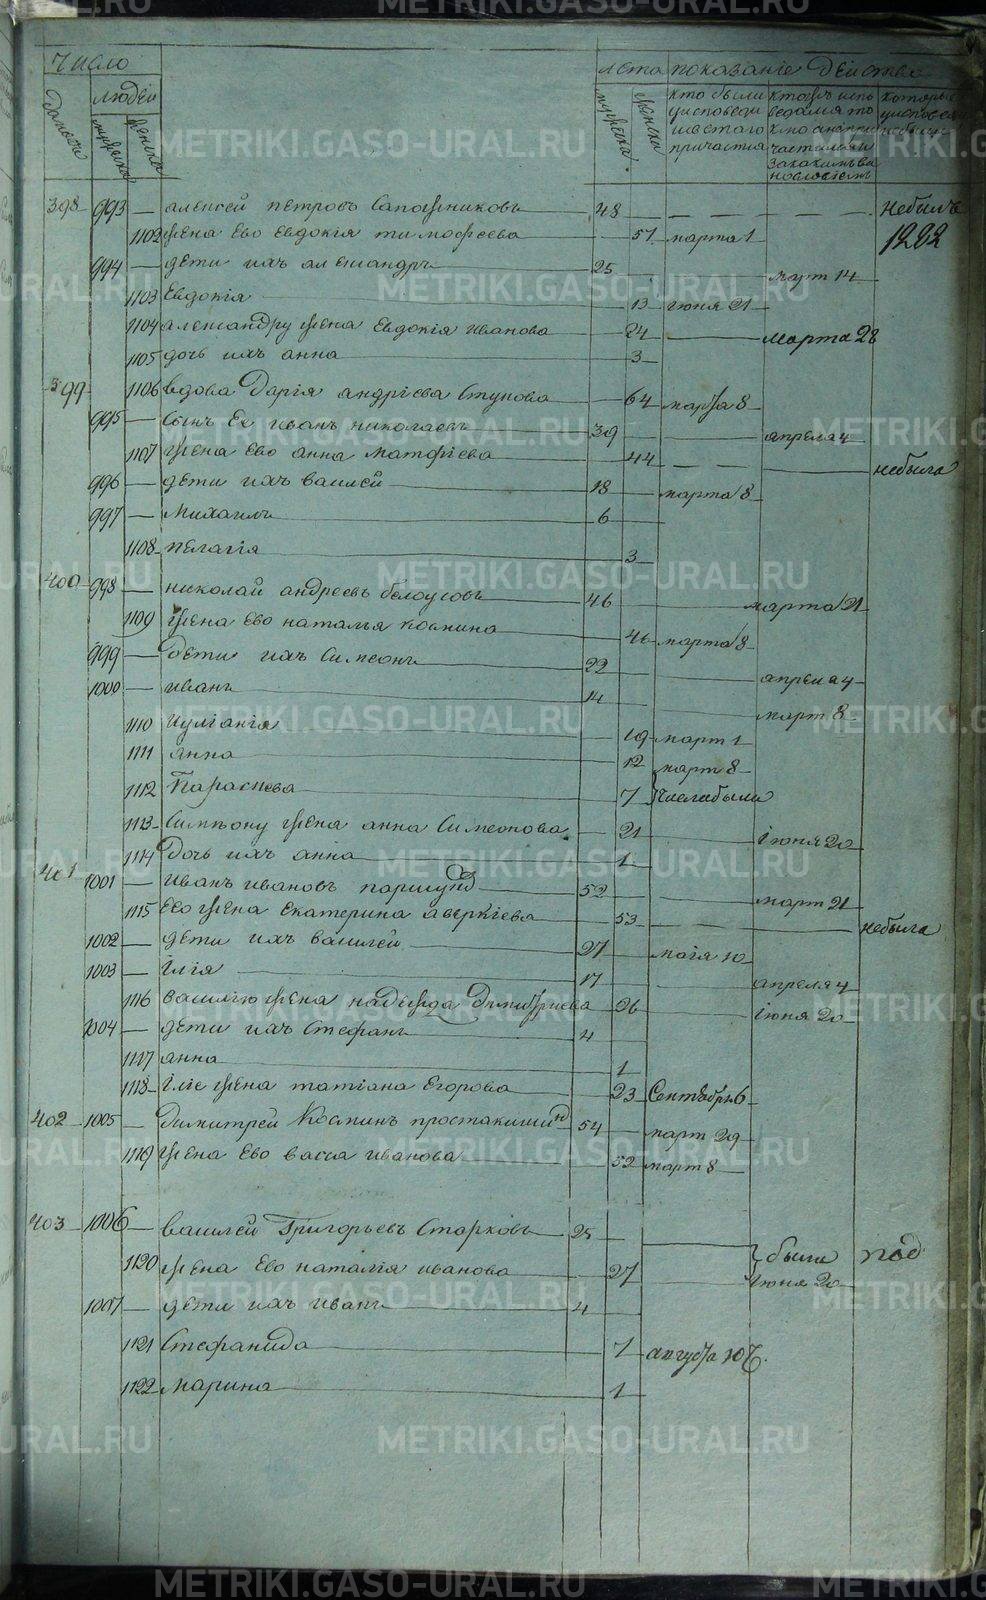 METRIKI.GASO-URAL.RU
Число
людей
мужеска
женска
лета
мужеска
женска
показание действа
кто были
у исповеди
398 993 — алексей петровъ Сапожниковъ 48 — — — — небылъ
1102 жена Ево Евдокiя тимофеева 51 марта 1 1222
994 — дети ихъ александръ 25 март 14
1103 Евдокiя 13 iюня 21
1104 александру жена Евдокiя иванова 24 марта 28
1105 дочь ихъ анна 3
399 1106 вдова Дарiя андрiева Ступова 64 марта 8
995 — сынъ Ее иванъ николаевъ 39 апреля 4
1107 жена Ево анна матфiева 44 — — небыла
996 — дети ихъ василей 18 марта 8
997 — михаилъ 6
1108 пелагiя 3
400 998 — николай андреевъ белоусовъ 46 марта 21
1109 жена Ево наталья космина 46 марта 8
999 — дети ихъ Симеонъ 22 апреля 4
1000 — иванъ 14 март 8
1110 Иулiанiя 19 март 1
1111 анна 12 март 8
1112 Параскева 7
1113 Симеону жена анна Симеонова 21 iюня 20
1114 Дочь ихъ анна 1
401 1001 — иванъ ивановъ 52 март 21
1115 Ево жена Екатерина аверкiева 53 — небыла
1002 — дети ихъ василей 27 маiя 10
1003 — Iлiя 17 апреля 4
1116 василiю жена надежда Димитрiева 26 iюня 20
1004 — дети ихъ Стефанъ 4
1117 анна 1
1118 Iлiе жена татiана Егорова 23 Сентября 6
402 1005 — Димитрей Косминъ 54 март 29
1119 жена Ево васса иванова 52 март 8
403 1006 — василей Григорьевъ Старковъ 25 были
1120 жена Ево наталiя иванова 27 iюня 20
1007 — дети ихъ иванъ 4
1121 Стефанида 7 августа
1122 марина 1